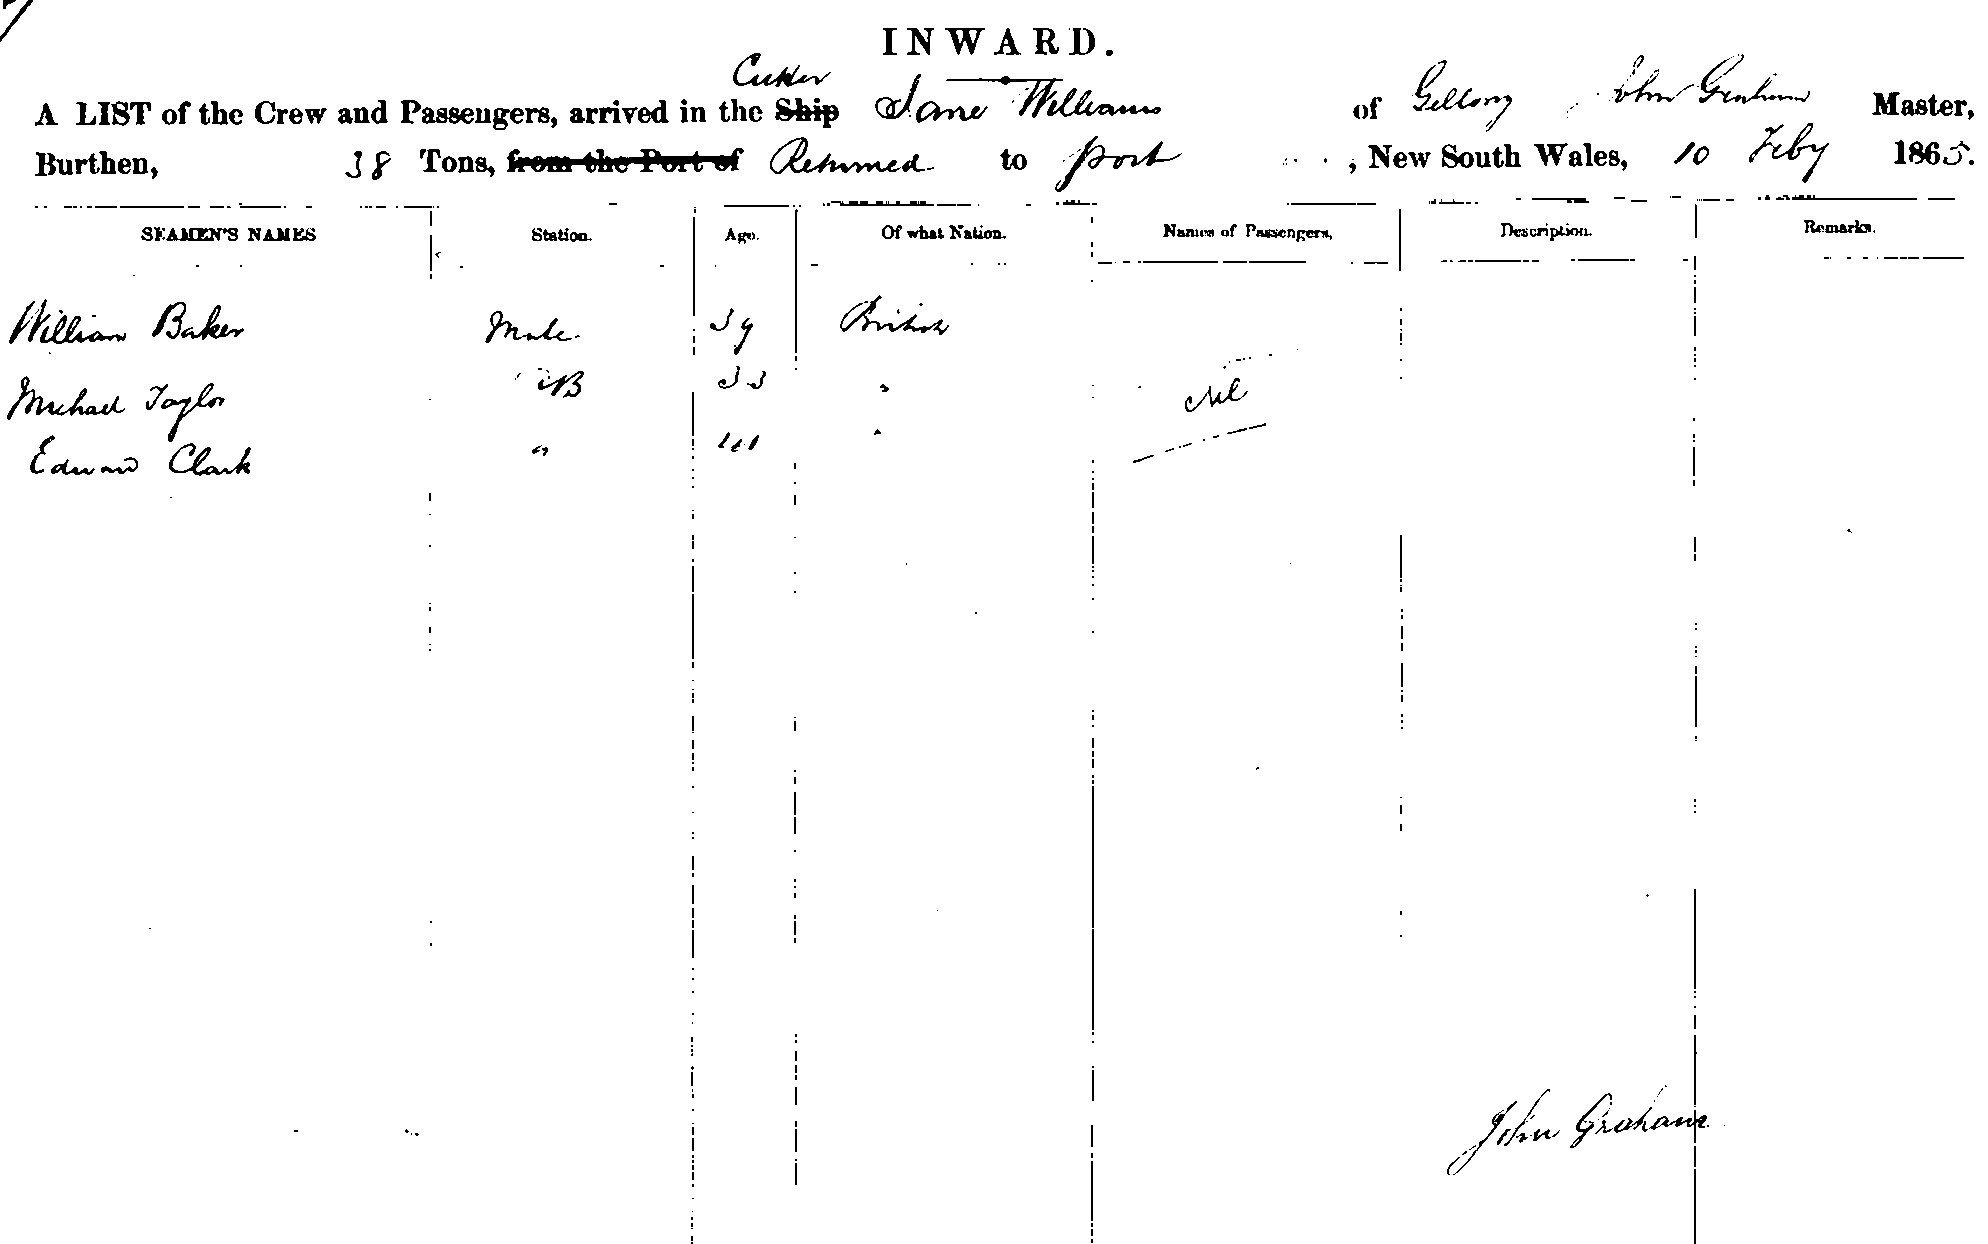 INWARD.
Cutter
A LIST of the Crew and Passengers, arrived in the Ship Jane Williams of John Graham Master,
Burthen, 38 Tons, from the Port of Returned to port , New South Wales, 10 Feby 1865.
SEAMEN'S NAMES Station. Age. Of what Nation. Names of Passengers, Description. Remarks.
William Baker Mate 39 British
Michael Taylor AB 33 " Nil
Edward Clark " "
John Graham